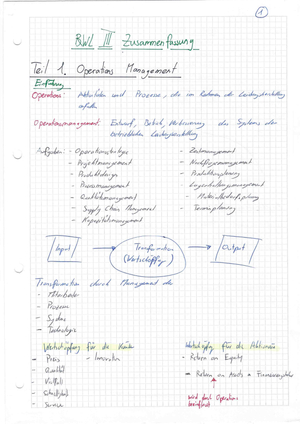 1
BWL III Zusammenfassung
Teil 1. Operations Management
Einführung
Operations: Aktivitäten und Prozesse, die im Rahmen der Leistungserstellung
anfallen
Operationsmanagement: Entwurf, Betrieb, Verbesserung des Systems der
betrieblichen Leistungserstellung
Aufgaben: - Operationsstrategie
- Projektmanagement
- Produktdesign
- Prozessmanagement
- Qualitätsmanagement
- Supply Chain Management
- Kapazitätsmanagement
- Zeitmanagement
- Nachfragemanagement
- Produktionsplanung
- Lagerhaltungsmanagement
- Materialbedarfsplanung
- Terminplanung
Input
Transformation
(Wertschöpfung)
Output
Transformation durch Management der
- Mitarbeiter
- Prozesse
- System
- Technologie
Wertschöpfung für die Kunden
- Preis
- Innovation
- Qualität
- Vielfalt
- Schnelligkeit
- Service
Wertschöpfung für die Aktionäre
- Return on Equity
- Return on Assets +
wird durch Operations
beeinflusst